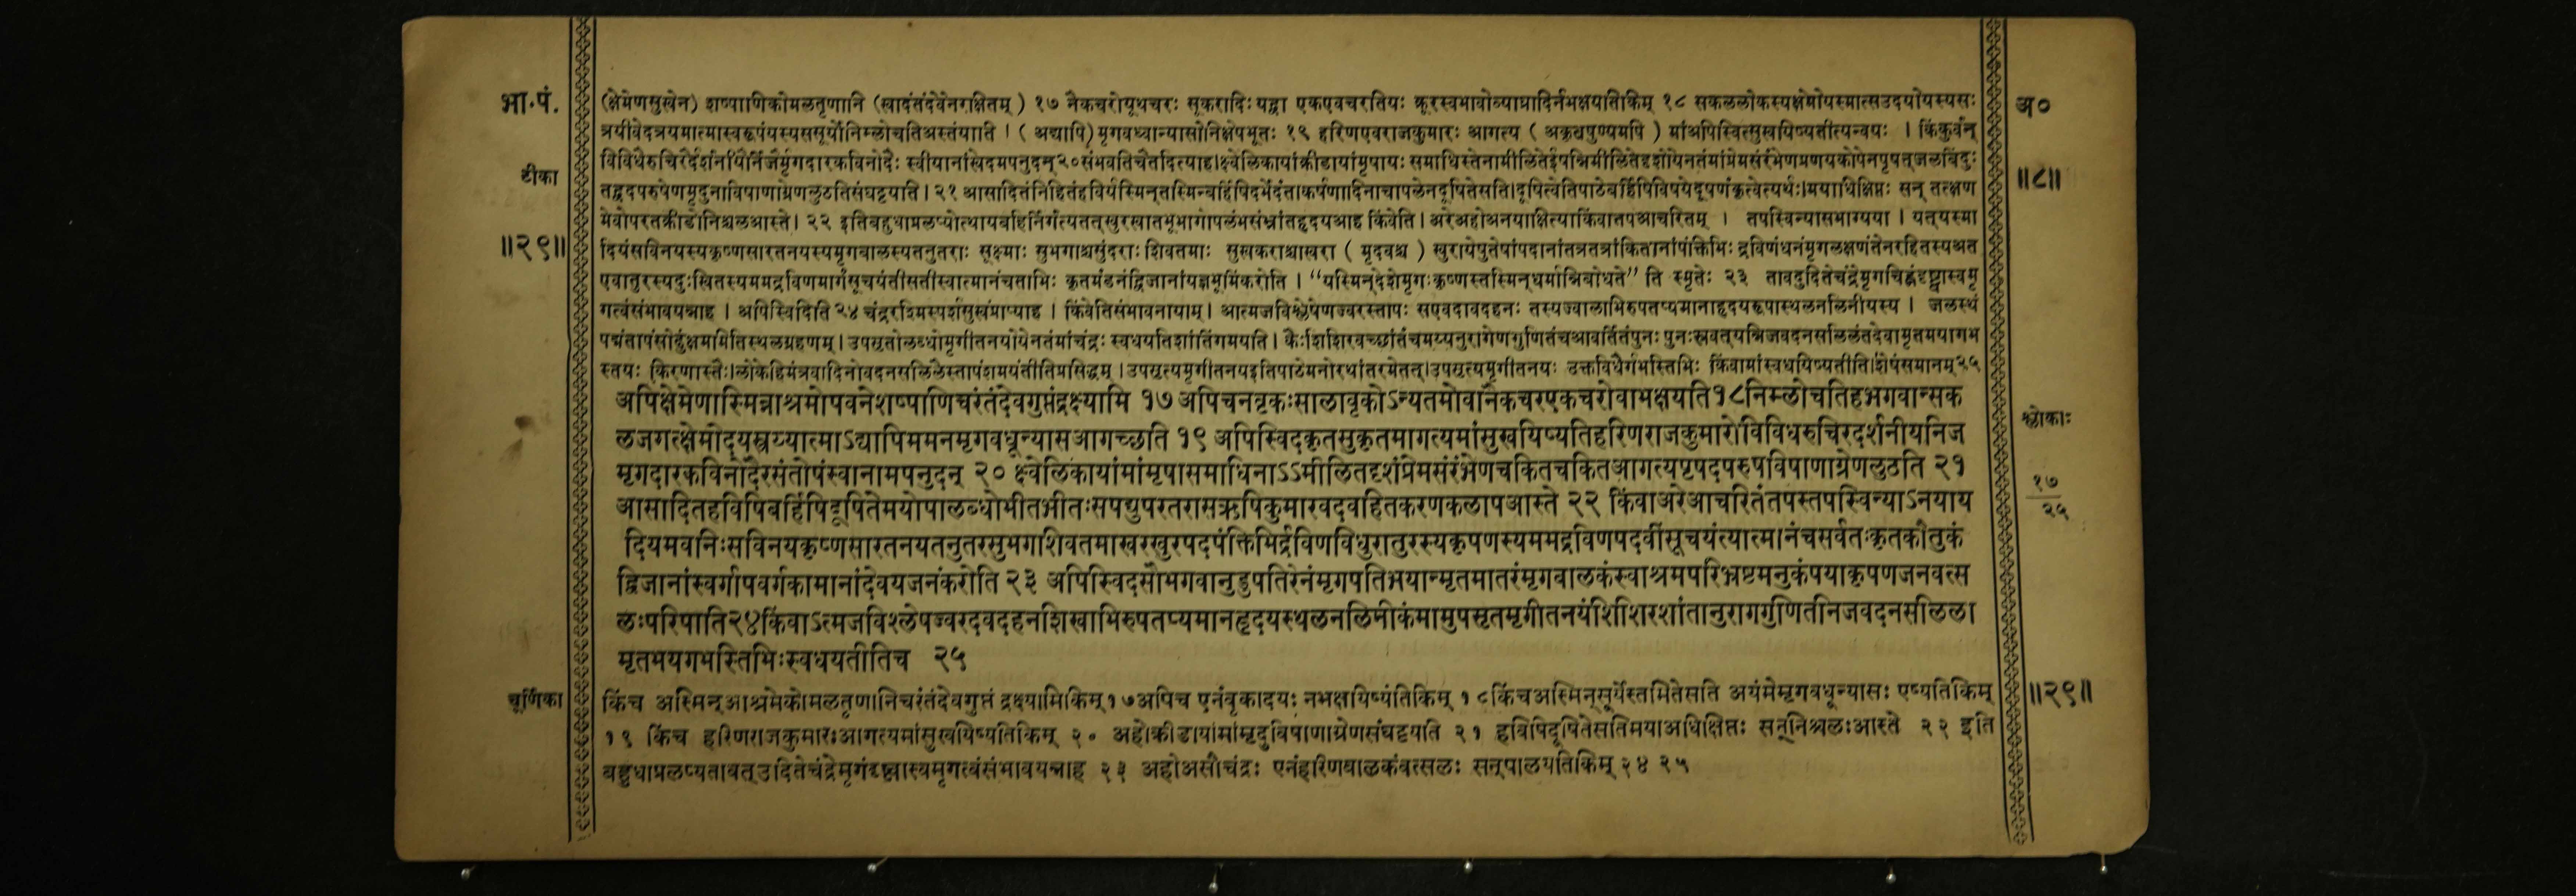 भा.पं.
टीका
॥२९॥
अ०
॥८॥
(क्षेमेणसुखेन) शष्पाणिकोमलतृणानि (खादंतंदेवेनरक्षितम्) १७ नैकचरोयूथचरः सूकरादिः यद्वा एकएवचरतियः क्रूरस्वभावोव्याघ्रादिर्नभक्षयतिकिम् १८ सकललोकस्यक्षेमोयस्मात्सउदयोयस्यसः
त्रयीवेदत्रयमात्मास्वरूपंयस्यससूर्योनिम्लोचतिअस्तंयाति । (अद्यापि) मृगवध्वान्यासोनिक्षेपभूतः १९ हरिणएवराजकुमारः आगत्य (अकृतपुण्यमपि) मांअपिस्वित्सुखयिष्यतीत्यन्वयः । किंकुर्वन्
विविधैरुचिरैर्दर्शनीयैर्निजैर्मृगदारकविनोदैः स्वीयानांखेदमपनुदन्२०संभवतिचैतदित्याह।क्ष्वेलिकायांक्रीडायांमृषायः समाधिस्तेनामीलितेईषन्निमीलितेदृशोयेनतंमांप्रेमसंरंभेणप्रणयकोपेनपृषत्जलबिंदुः
तद्वदपरुषेणमृदुनाविषाणाग्रेणलुठतिसंघट्टयति। २१ आसादितंनिहितंहविर्यस्मिन्तस्मिन्बर्हिषिदर्भेदंताकर्षणादिनाचापलेनदूषितेसति।दूषित्वेतिपाठेबर्हिषिविषयेदूषणंकृत्वेत्यर्थः।मयाधिक्षिप्तः सन् तत्क्षण
मेवोपरतक्रीडोनिश्चलआस्ते। २२ इतिबहुधाप्रलप्योत्थायबहिर्निर्गत्यतत्खुरखातभूभागोपलंभसंभ्रांतहृदयआह किंवेति। अरेअहोअनयाक्षित्याकिंवातपआचरितम् । तपस्विन्यासभाग्यया । यत्यस्मा
दियंसविनयस्यकृष्णसारतनयस्यमृगबालस्यतनुतराः सूक्ष्माः सुभगाश्चसुंदराः शिवतमाः सुखकराश्चाखरा (मृदवश्च) खुरायेषुतेषांपदानांतत्रतत्रांकितानांपंक्तिभिः द्रविणंधनंमृगलक्षणंतेनरहितस्यअत
एवातुरस्यदुःखितस्यममद्रविणमार्गंसूचयंतीसतीस्वात्मानंचताभिः कृतमंडनंद्विजानांयज्ञभूमिंकरोति । “यस्मिन्देशेमृगःकृष्णस्तस्मिन्धर्मान्निबोधते” ति स्मृतेः २३ तावदुदितेचंद्रेमृगचिह्नंदृष्ट्वास्वमृ
गत्वंसंभावयन्नाह । अपिस्विदिति २४ चंद्ररश्मिस्पर्शसुखंप्राप्याह । किंवेतिसंभावनायाम्। आत्मजविश्लेषेणज्वरस्तापः सएवदावदहनः तस्यज्वालाभिरुपतप्यमानाहृदयरूपास्थलनलिनीयस्य । जलस्थं
पद्मंतापंसोढुंक्षममितिस्थलग्रहणम्। उपसृतोलब्धोमृगीतनयोयेनतंमांचंद्रः स्वधयतिशांतिंगमयति। कैःशिशिरंस्वच्छंशांतंचमय्यनुरागेणगुणितंचआवर्तितंपुनः पुनःस्रवत्यन्निजवदनसलिलंतदेवामृतमयागभ
स्तयः किरणास्तैः।लोकेहिमंत्रवादिनोवदनसलिलैस्तापंशमयंतीतिप्रसिद्धम्। उपसृत्यमृगीतनयइतिपाठेमनोरथांतरमेतत्।उपसृत्यमृगीतनयः उक्तविधैर्गभस्तिभिः किंवामांस्वधयिष्यतीति।शेषंसमानम्२५
अपिक्षेमेणास्मिन्नाश्रमोपवनेशष्पाणिचरंतंदेवगुप्तंद्रक्ष्यामि १७ अपिचनवृकःसालावृकोऽन्यतमोवानैकचरएकचरोवाभक्षयति१८निम्लोचतिहभगवान्सक
लजगत्क्षेमोदयस्त्रय्यात्माऽद्यापिममनमृगवधून्यासआगच्छति १९ अपिस्विदकृतसुकृतमागत्यमांसुखयिष्यतिहरिणराजकुमारोविविधरुचिरदर्शनीयनिज
मृगदारकविनोदैरसंतोषंस्वानामपनुदन् २० क्ष्वेलिकायांमांमृषासमाधिनाऽऽमीलितदृशंप्रेमसंरंभेणचकितचकितआगत्यपृषदपरुषविषाणाग्रेणलुठति २१
आसादितहविषिबर्हिषिदूषितेमयोपालब्धोभीतभीतःसपद्युपरतरासऋषिकुमारवदवहितकरणकलापआस्ते २२ किंवाअरेआचरितंतपस्तपस्विन्याऽनयाय
दियमवनिःसविनयकृष्णसारतनयतनुतरसुभगशिवतमाखरखुरपदपंक्तिभिर्द्रविणविधुरातुरस्यकृपणस्यममद्रविणपदवींसूचयंत्यात्मानंचसर्वतःकृतकौतुकं
द्विजानांस्वर्गापवर्गकामानांदेवयजनंकरोति २३ अपिस्विदसौभगवानुडुपतिरेनंमृगपतिभयान्मृतमातरंमृगबालकंस्वाश्रमपरिभ्रष्टमनुकंपयाकृपणजनवत्स
लःपरिपाति२४किंवाऽत्मजविश्लेषज्वरदवदहनशिखाभिरुपतप्यमानहृदयस्थलनलिनीकंमामुपसृतमृगीतनयंशिशिरशांतानुरागगुणितनिजवदनसलिला
मृतमयगभस्तिभिःस्वधयतीतिच २५
श्लोकाः
१७
२५
चूर्णिका
किंच अस्मिन्आश्रमेकोमलतृणानिचरंतंदेवगुप्तं द्रक्ष्यामिकिम्१७अपिच एनंवृकादयः नभक्षयिष्यंतिकिम् १८किंचअस्मिन्सूर्येस्तमितेसति अयंमेमृगवधून्यासः एष्यतिकिम्
१९ किंच हरिणराजकुमारःआगत्यमांसुखयिष्यतिकिम् २० अहोक्रीडायांमांमृदुविषाणाग्रेणसंघट्टयति २१ हविषिदूषितेसतिमयाअधिक्षिप्तः सन्निश्चलःआस्ते २२ इति
बहुधाप्रलप्यतावत्उदितेचंद्रेमृगंदृष्ट्वास्वमृगत्वंसंभावयन्नाह २३ अहोअसौचंद्रः एनंहरिणबालकंवत्सलः सन्पालयतिकिम् २४ २५
॥२९॥